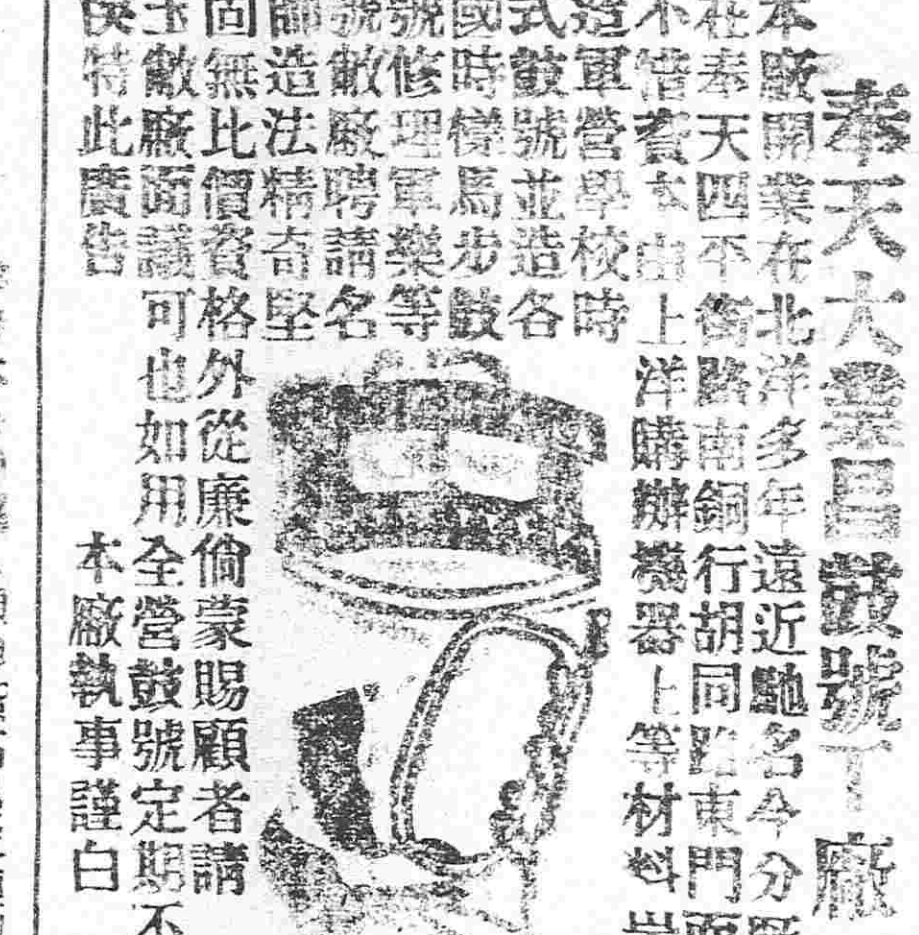 奉天大業昌鼓號工廠
本廠開業在北洋多年遠近馳名今分
在奉天四平街路南銅行胡同路東門面
不惜資本由上洋購辦機器上等材料
造軍營學校時
式鼓號並造各
國時樣馬步鼓
號修理軍樂等
號敝廠聘請名
師造法精奇堅
固無比價資格外從廉倘蒙賜顧者請
玉敝廠面議可也如用全營鼓號定期不
悮特此廣告
本廠執事謹白